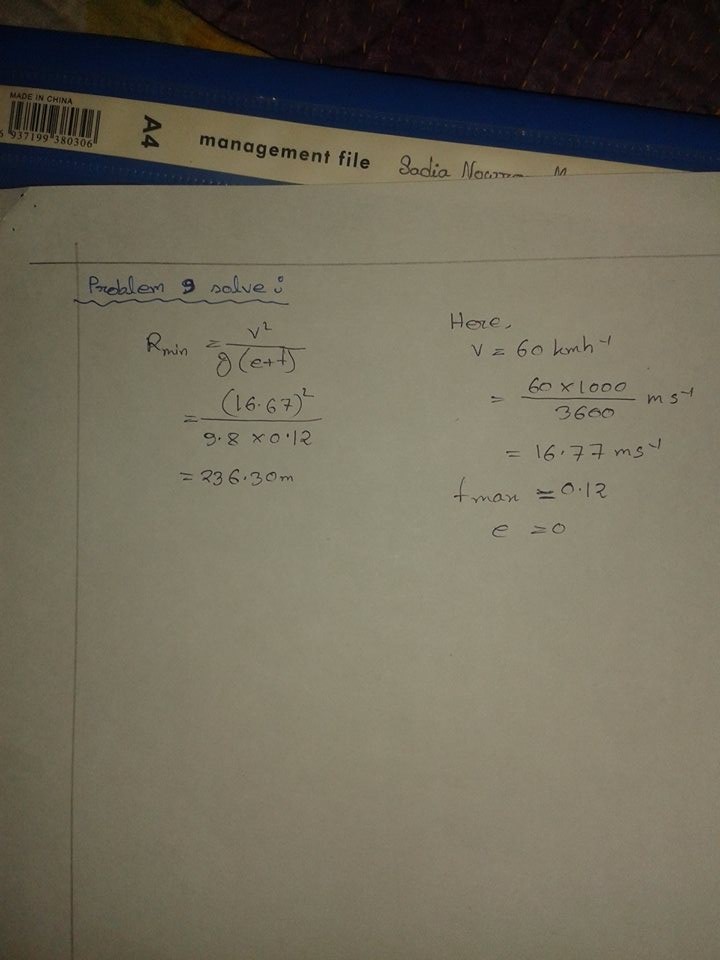 MADE IN CHINA
937199 380306
A4
management file
Sadia
Problem 9 solve:
R min = V² / g (e+f)
= (16.67)² / 9.8 × 0.12
= 236.30m
Here,
V = 60 kmh⁻¹
= 60 × 1000 / 3600 ms⁻¹
= 16.77 ms⁻¹
f max = 0.12
e = 0